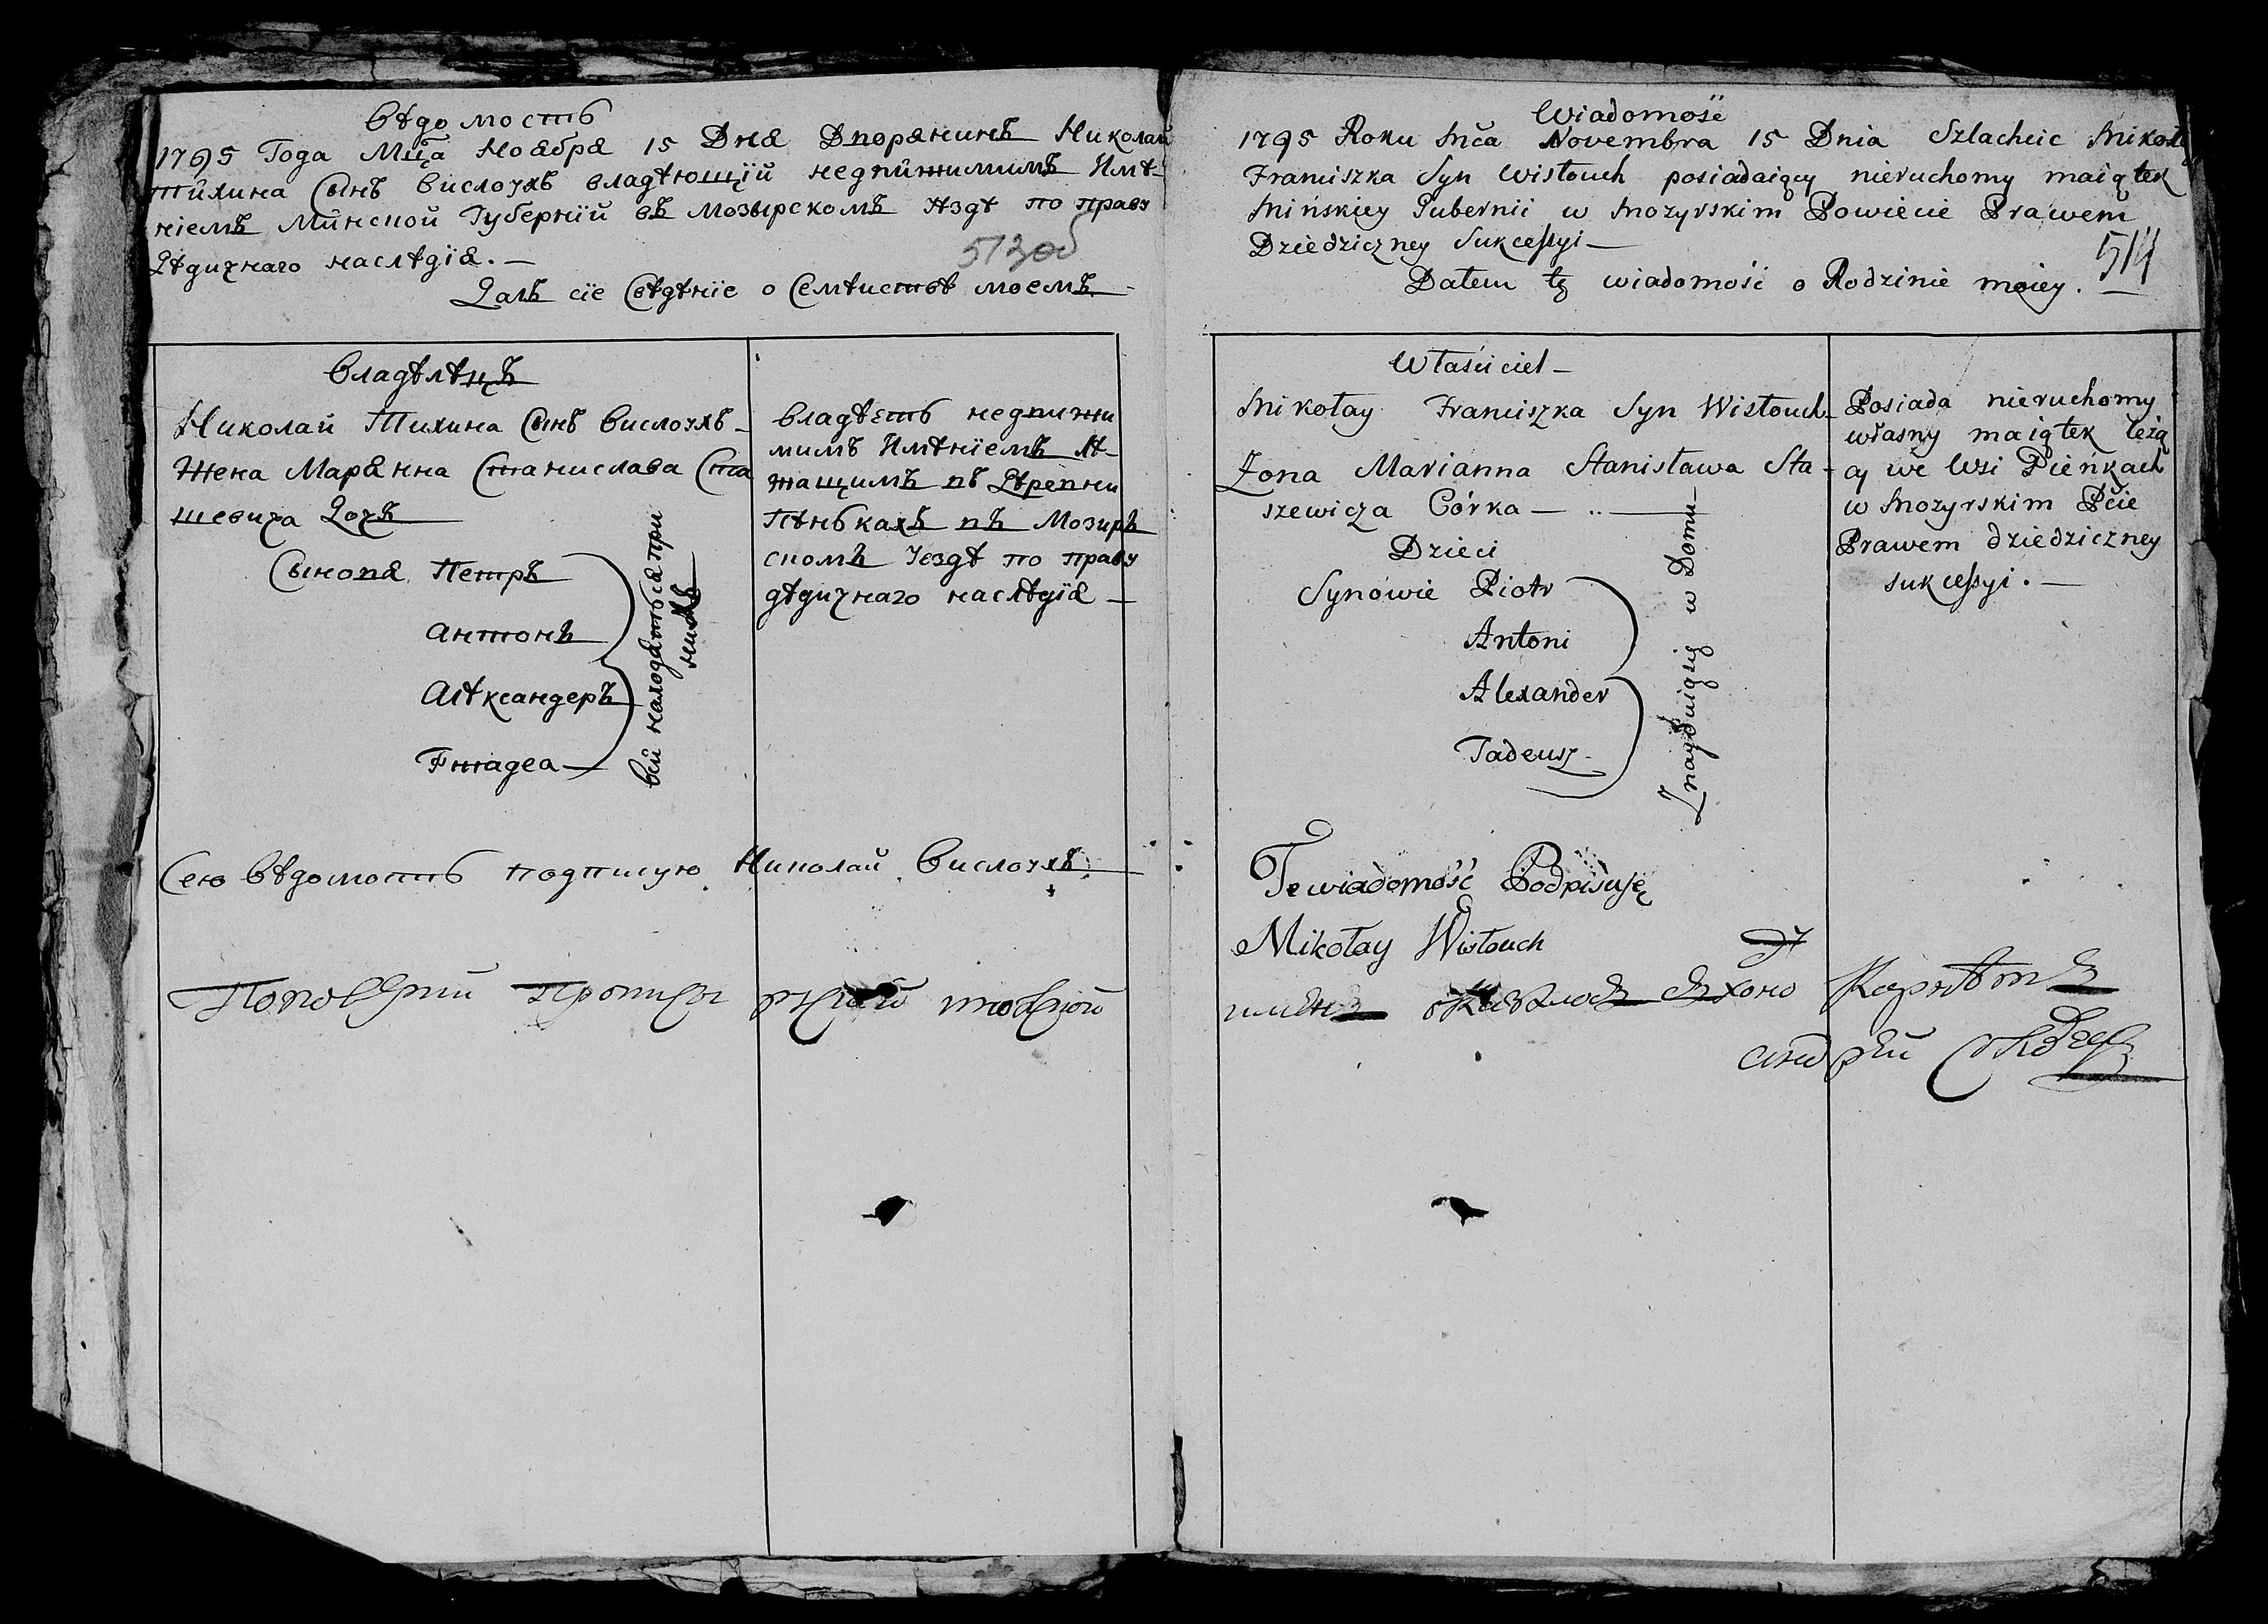 Вѣдомость
1795 Года Мца Ноября 15 Дня Дворянинъ Николай
Тихина Сынъ Вислоухъ владѣющій недвижимимъ Имѣ-
ніемъ Минской Губерніи въ Мозырскомъ уѣздѣ по праву
Дѣдичнаго наслѣдія. —
513об
Далъ сіе Свѣдѣніе о Семѣиствѣ моемъ —
Владѣлѣцъ
Николай Тихина Сынъ Вислоухъ —
Жена Марянна Станислава Ста
шевича Дочъ
Сыновя Петръ
Антонъ
Алѣксандеръ
Ѳтадеа —
Всѣ находяться при
нихъ
Владѣетъ недвижи
мимъ Имѣніемъ Лѣ-
жащимъ въ Дѣревни
Пѣнькахъ въ Мозирь
скомъ Уездѣ по праву
дѣдичнаго наслѣдія —
Сею Вѣдомость подписую Николай Вислоухъ
Wiadomość
1795 Roku Mča Novembra 15 Dnia Szlachcic Mikołay
Franciszka Syn Wisłouch posiadaiący nieruchomy maiątek
Mińskiey Gubernii w Mozyrskim Powiecie Prawem
Dziedziczney Sukcessyi —
514
Datem tę wiadomość o Rodzinie moiey.
Właściciel —
Mikołay Franciszka Syn Wisłouch
Zona Marianna Stanisława Sta-
szewicza Córka —
Dzieci
Synowie Piotr
Antoni
Alexander
Tadeusz
Znayduią się w Domu —
Posiada nieruchomy
własny maiątek leżą
cy we Wsi Pieńkach
w Mozyrskim Pčie
Prawem dziedziczney
sukcessyi. —
Te wiadomość Podpisuję
Mikołay Wisłouch